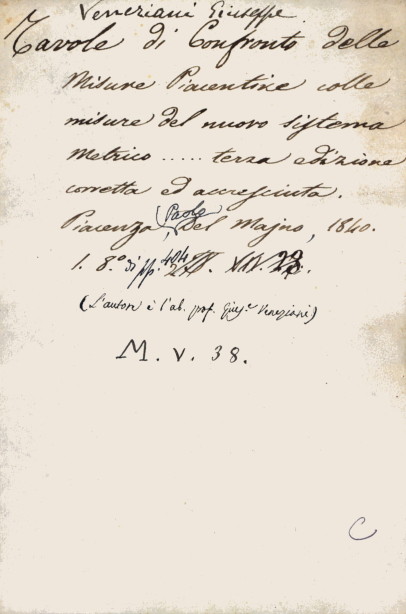 Veneziani Giuseppe.
Tavole di Confronto delle
Misure Piacentine colle
misure del nuovo sistema
Metrico ..... terza edizione
corretta ed accresciuta.
Piacenza, (Paolo) Del Majno, 1840.
1. 8.º di pp. 404
(L'autore è l'ab. prof. Gius.e Veneziani)
M. V. 38.
C